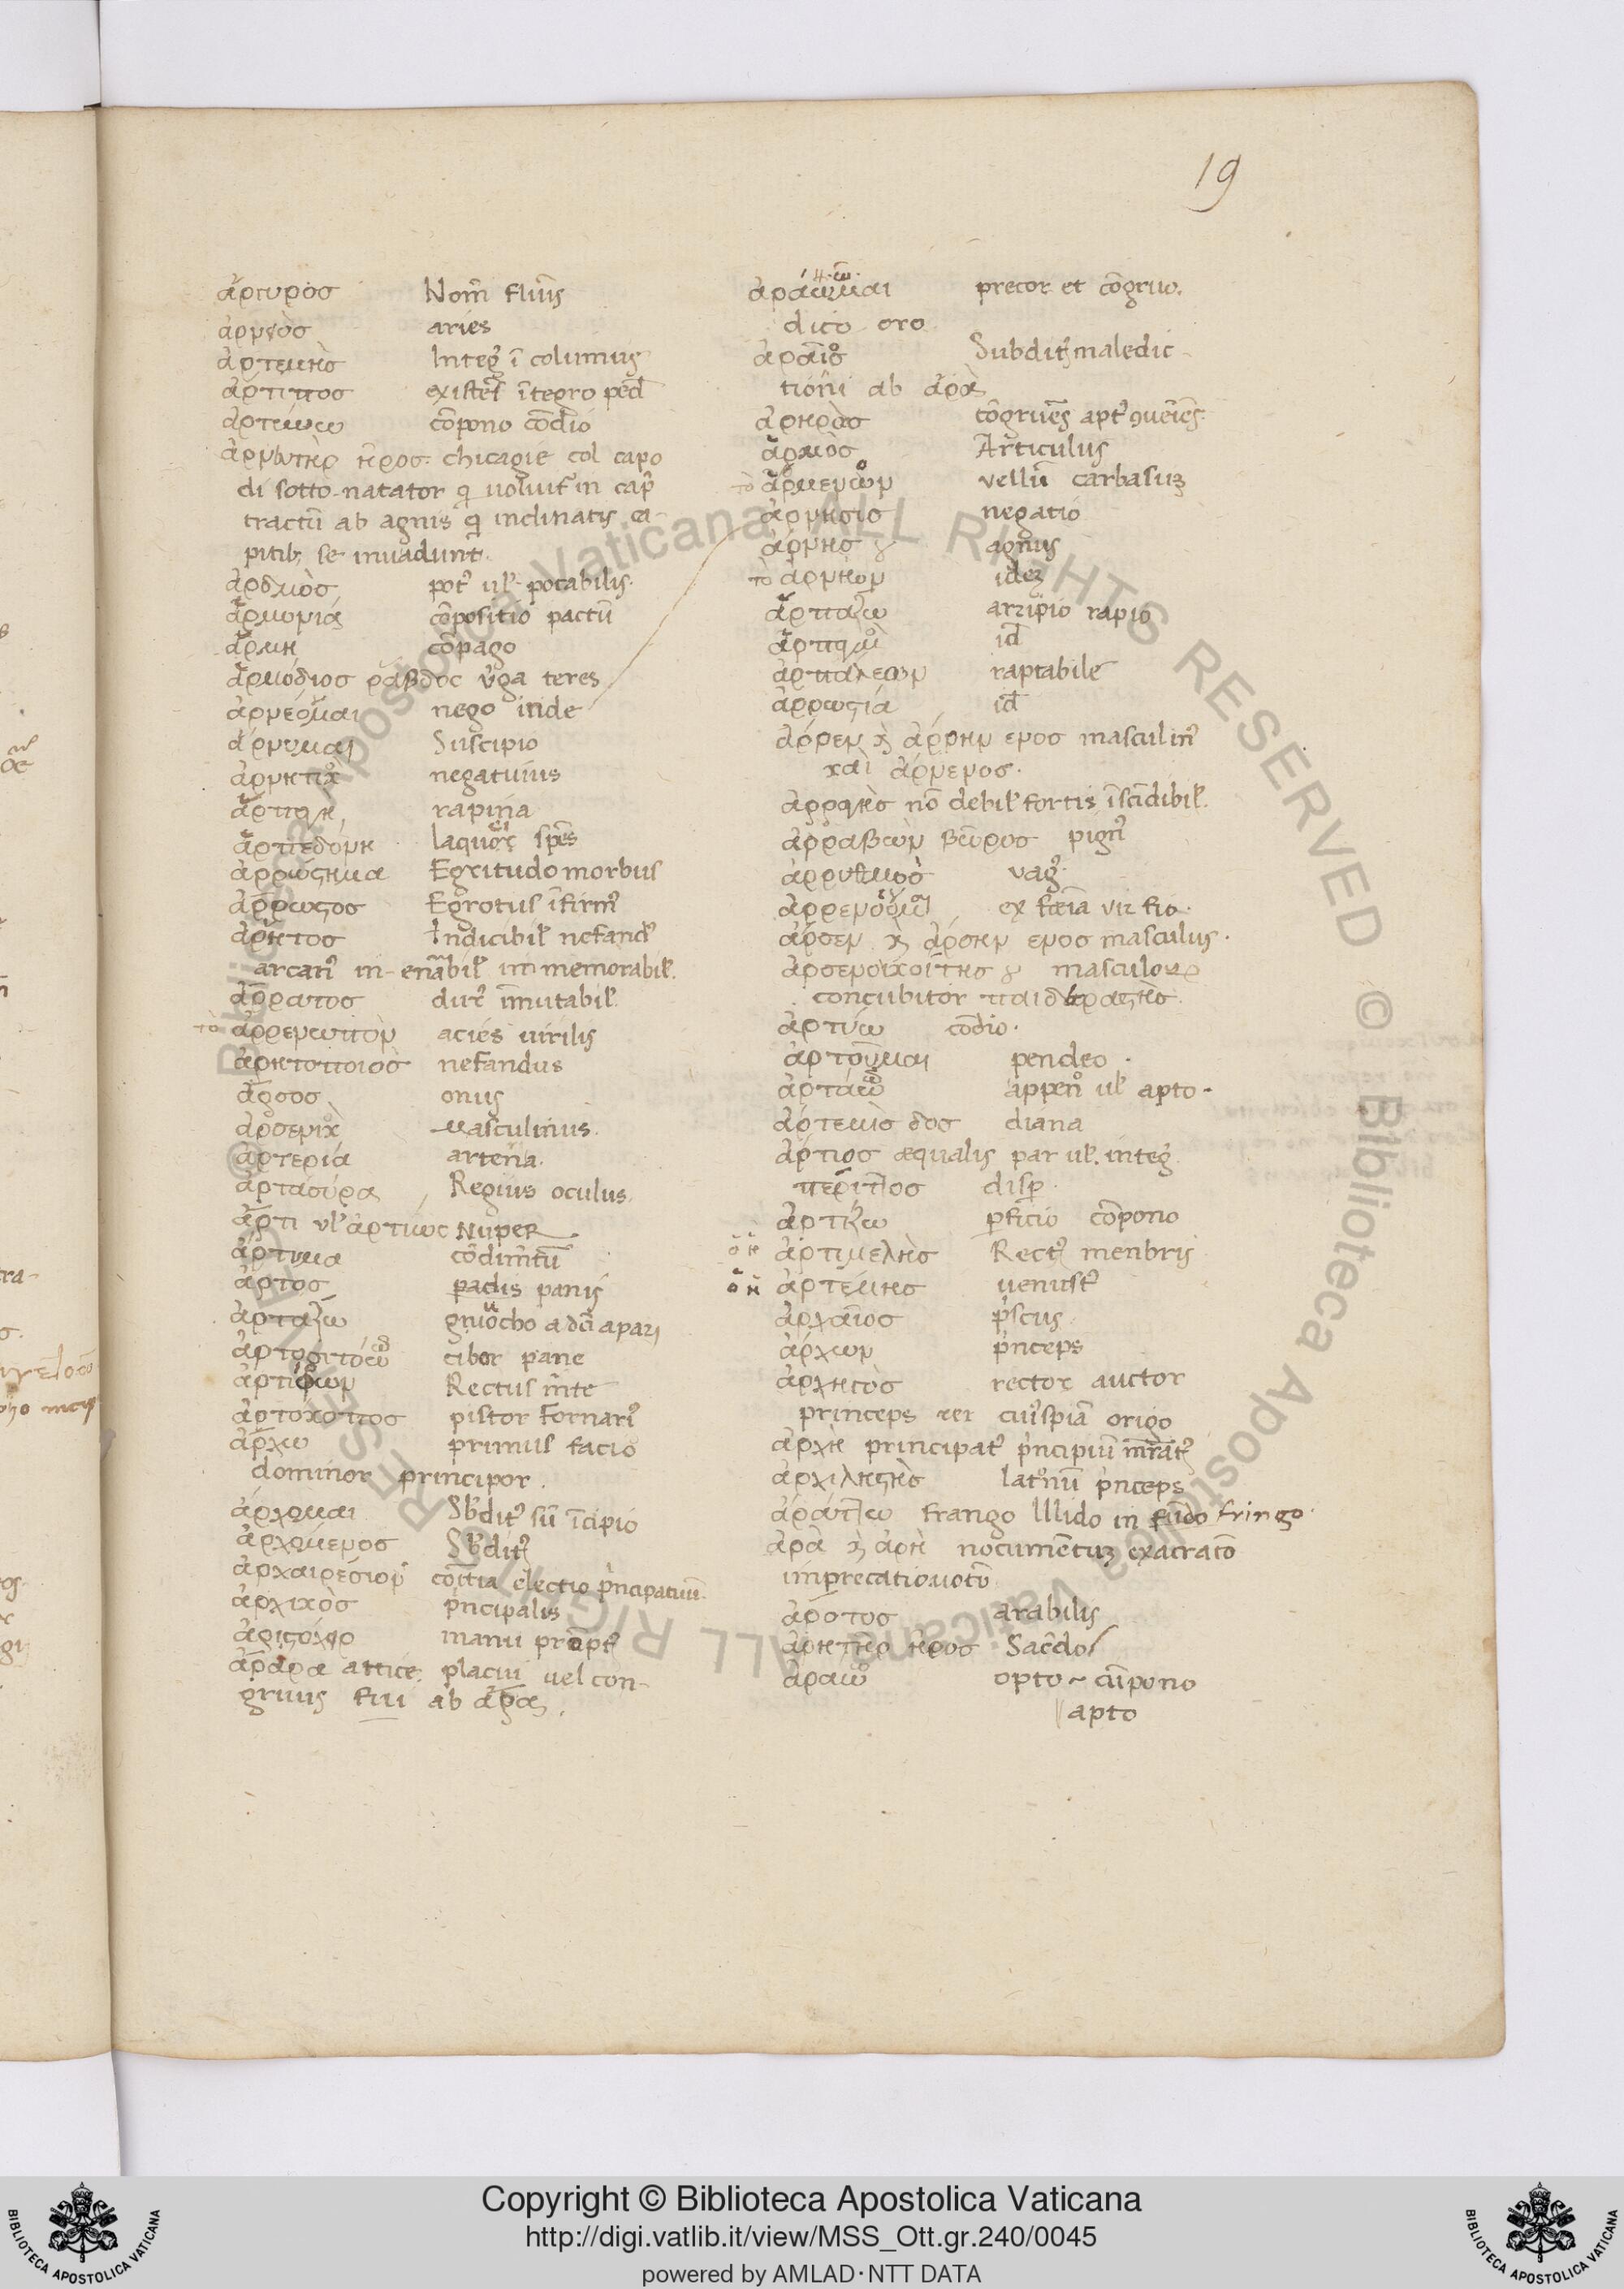 19
ἄρτυρὸσ Nom̃ fluiĩs
ἀρνεὸσ aries
ἀρτεμὴσ Integ̃ ĩ columus
ἀρτιπος existẽs ĩtegro ped̃
ἀρτεύω cõpono cõdio
ἀρνευτὴρ ῆρος. chi cagie col capo
di sotto natator q̃ uoluit̃ in cap̃
tractũ ab agnis q̃ inclinatis ca-
pitib; se inuadunt.
ἀρδμὸς pot̃ ul̃ potabilis.
ἁρμονιά cõpositio pactũ
ἁρμη cõpago
ἁρμόδιος ῥάβδος ṽga teres
ἀρνεόμαι nego inde
ἀρνυμαι Suscipio
ἀρνητικ negatiuus
ἁρπαγη rapina
ἁρπεδόνη laqueus spẽs
ἀρρώστημα Egritudo morbus
ἄρρωστος Egrotus ĩfirm̃
ἀρητος Indicibil̃ nefand̃
arcañ in-enãbil̃ immemorabil̃.
ἄρρατος dur̃ ĩmutabil̃
τὸ ἀρρενωπὸν acies uirilis
ἀρητοποιοσ nefandus
ἄρσος onus
ἀρσενικ masculinus.
ἀρτεριά arteria.
ἀρτασύρας Regius oculus.
ἄρτι ul̃ ἀρτίως Nuper
ἀρτυμα cõdim̃tũ
ἄρτος padis panis
ἀρταζω
ἀρτοσιτόεω cibor pane
ἀρτίφρων Rectus m̃te
ἀρτοκόπος pistor Fornari᷒
ἄρχω primus facio
dominor principor.
ἄρχομαι Sb̃dit̃ sũ ĩcipio
ἀρχόμενος Sb̃dit̃
ἀρχαιρέσιον comĩtia electio p̃ncipatuum̃
ἀρχικὸς p̃ncipalis
ἀριστόχειρ manu prõpt̃
ἄραρα attice. placui uel con-
gruus fui ab ἄρας.
ἀράομαι precor et cõgruo.
dico oro
ἀραῖος Subdit̃ maledic-
tioni ab ἀρὰς
ἀρηρὸς cõgruẽs apt̃ ꝯueĩẽs.
ἁρμὸς Articulus
τὸ ἄρμενον vellũ carbasuꝫ
ἄρνησις negatio
ἄρνης agnus
τὸ ἀρνίον ideꝫ
ἁρπαζω arripio rapio
ἁρπῶ id̃
ἁρπάλεον raptabile
ἀρρωστιά id̃
ἄρρεν ϗ ἄρρην ενος masculiñ
καὶ ἄρνενος.
ἀρραγὴς nõ debil̃ fortis ĩscĩdibil̃.
ἀρραβὼν βεῦρος pigñ
ἀρρυθμοσ vag̃.
ἀρρενόομαι ex fẽĩa vir fio.
ἄρσεν ϗ ἄρσην ενος masculus.
ἀρσενοκοίτης masculor
concubitor παιδεραστὴς.
ἀρτύω cõdio.
ἀρτοῦμαι pendeo.
ἀρτάω appen᷒ ul̃ apto.
ἀρτεμὶς δος diana
ἄρτιος æqualis par ul̃. integ̃.
περίττος disp̃.
ἀρτίζω pficio cõpono
ὁ ἡ ἀρτιμελὴς Rect̃ menbris
ὁ ἡ ἀρτέμης uenust̃
ἀρχαῖος p̃scus
ἄρχων p̃nceps
ἀρχηγὸς rector auctor
princeps rei cuiᷤspiã origo
ἀρχὴ principat̃ p̃ncipiũ m̃rat̃
ἀρχιληστὴς latr̃nũ p̃nceps
ἀράττω frango Illido in fũdo fringo.
ἀρὰ ϗ ἀρὴ nocumẽtuꝫ exacratõ
imprecatio uotũ
ἄροτος arabilis
ἀρητὴρ ῆρος Sacẽdos
ἀραω opto ~ cõpono
apto
Copyright © Biblioteca Apostolica Vaticana
http://digi.vatlib.it/view/MSS_Ott.gr.240/0045
powered by AMLAD·NTT DATA